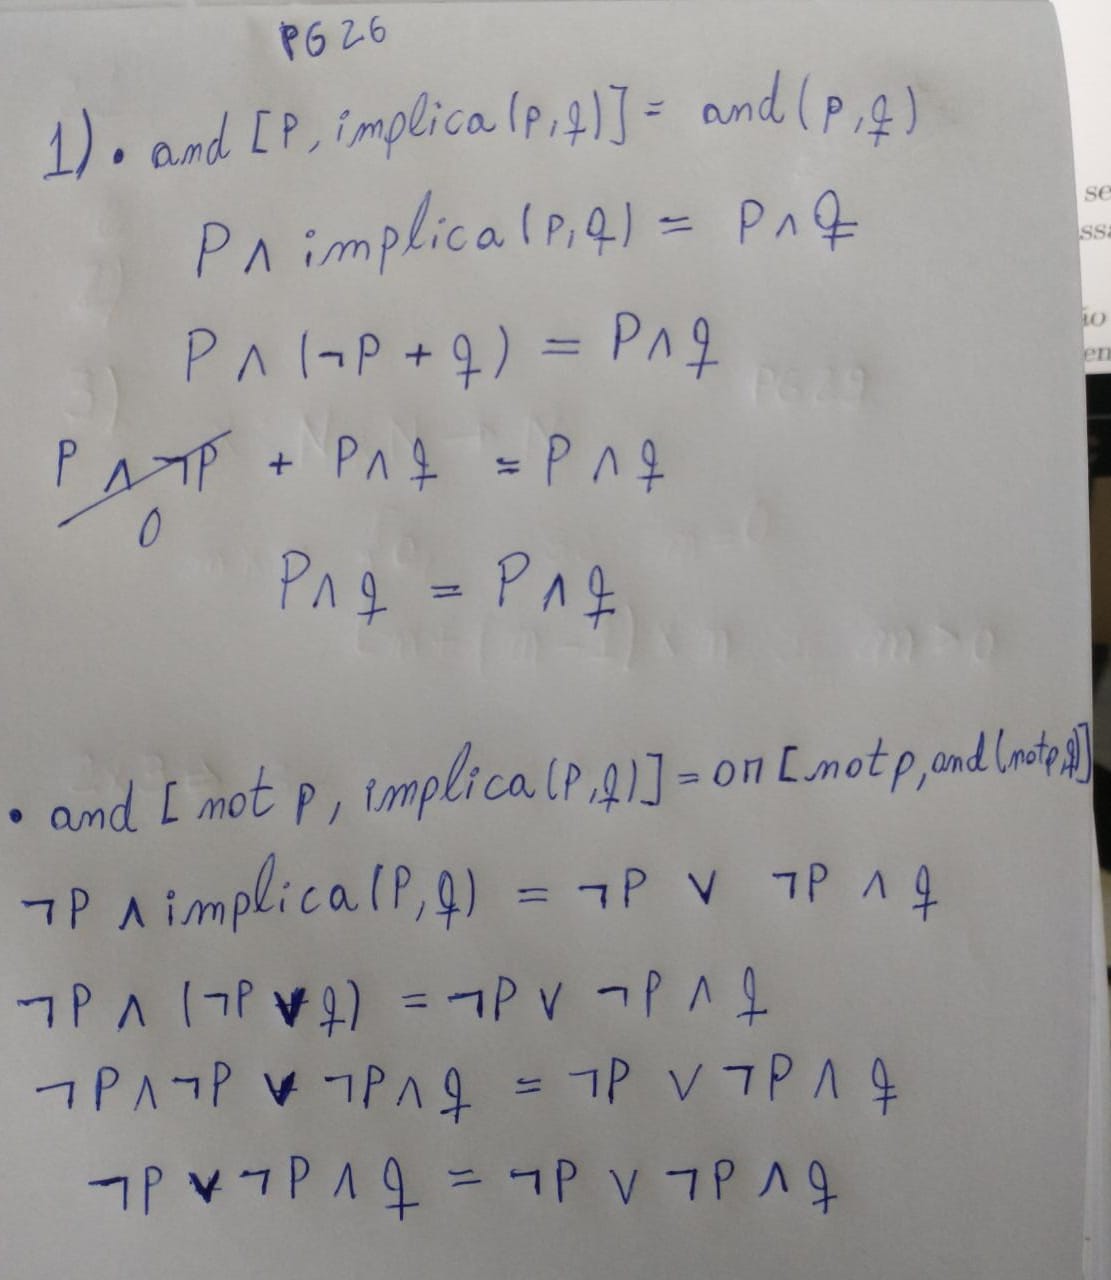 PG 26
1) • and [P, implica(p,q)] = and(p,q)
P ∧ implica(p,q) = P ∧ q
P ∧ (¬P + q) = P ∧ q
P ∧ ¬P + P ∧ q = P ∧ q
0
P ∧ q = P ∧ q
• and [not p, implica(p,q)] = or [not p, and(not p,q)]
¬P ∧ implica(P,q) = ¬P ∨ ¬P ∧ q
¬P ∧ (¬P ∨ q) = ¬P ∨ ¬P ∧ q
¬P ∧ ¬P ∨ ¬P ∧ q = ¬P ∨ ¬P ∧ q
¬P ∨ ¬P ∧ q = ¬P ∨ ¬P ∧ q